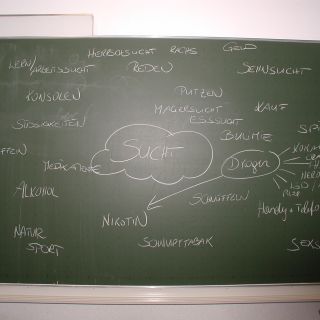 HERBOLSUCHT RACHS GELD
LERN/ARBEITSSUCHT REDEN SEHNSUCHT
KONSOLEN PUTZEN
MAGERSUCHT KAUF
SÜSSIGKEITEN ESSSUCHT
BULIMIE
SUCHT Drogen
MEDIKAMENTE
ALKOHOL SCHNÜFFELN
NIKOTIN Handy + Telefo
NATUR
SPORT SCHNUPFTABAK SEXS